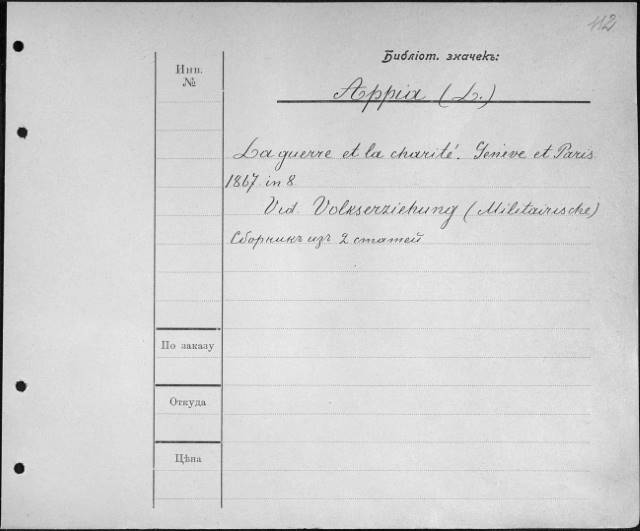 112
Библіот. значекъ:
Инв.
№
Appia (L.)
La guerre et la charité. Genève et Paris
1867 in 8
Vid. Volkserziehung (Militairische)
Сборникъ изъ 2 статей
По заказу
Откуда
Цѣна